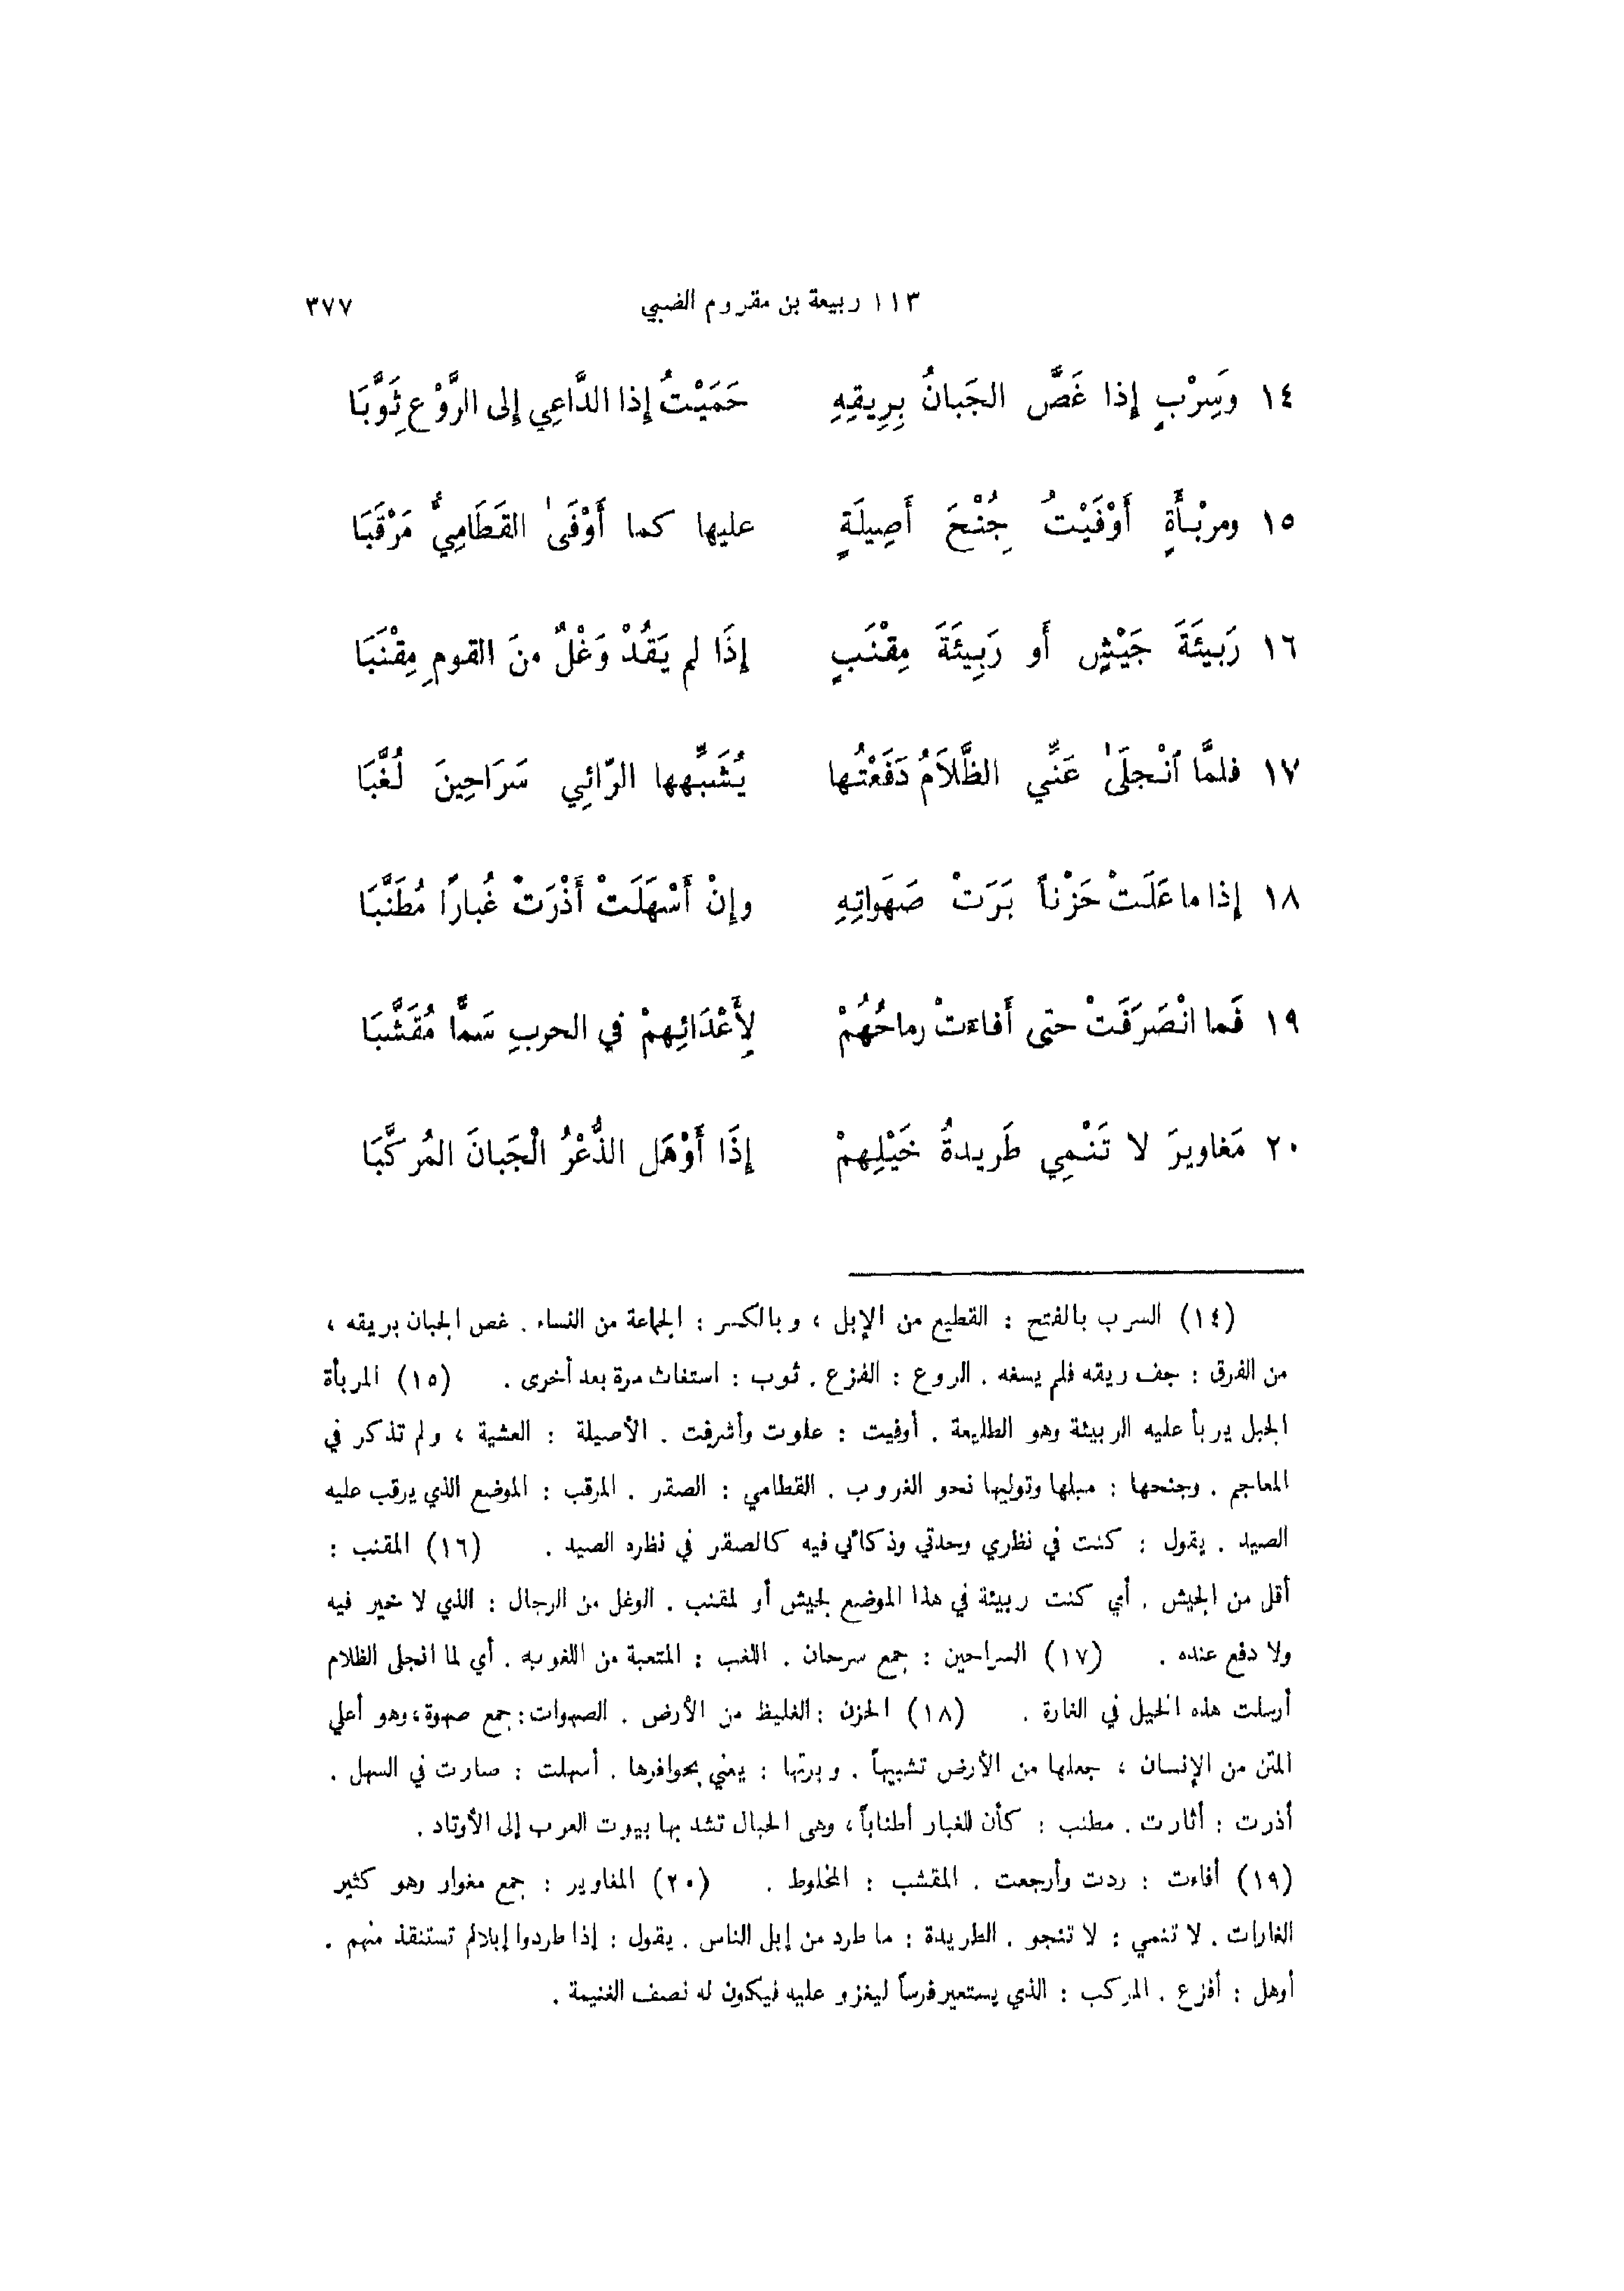 ١١٣ ربيعة بن مقروم الضبي ٣٧٧
١٤ وَسِرْبٍ إِذا غَصَّ الجَبانُ بِرِيقِهِ حَمَيْتُ إِذا الدَّاعِي إِلى الرَّوْعِ ثَوَّبَا
١٥ ومرْبْأَةٍ أَوْفَيْتُ جُنْحَ أَصِيلَةٍ عليها كما أَوْفَىٰ القَطَامِيُّ مَرْقَبَا
١٦ رَبِيئَةَ جَيْشٍ أَو رَبِيئَةَ مِقْنَبٍ إِذَا لم يَقُدْ وَغْلٌ منَ القومِ مِقْنَبَا
١٧ فلمَّا ٱنْجلَىٰ عَنِّي الظَّلاَمُ دَفَعْتُها يُشَبِّهها الرّائِي سَرَاحِينَ لُغَّبَا
١٨ إِذا ما عَلَتْ حَزْناً بَرَتْ صَهَواتِهِ وإِنْ أَسْهَلَتْ أَذْرَتْ غُبارًا مُطَنَّبَا
١٩ فَما انْصَرَفَتْ حتى أَفاءَتْ رماحُهُمْ لِأَعْدَائِهِمْ في الحربِ سَمًّا مُقَشَّبَا
٢٠ مَغاويرَ لا تَنْمِي طَريدةُ خَيْلِهِمْ إِذَا أَوْهَل الذُّعْرُ الْجَبانَ المُركَّبَا
(١٤) السرب بالفتح : القطيع من الإبل ، وبالكسر : الجماعة من النساء . غص الجبان بريقه ،
من الفرق : جف ريقه فلم يسغه . الروع : الفزع . ثوب : استغاث مرة بعد أخرى . (١٥) المربأة
الجبل يربأ عليه الربيئة وهو الطليعة . أوفيت : علوت وأشرفت . الأصيلة : العشية ، ولم تذكر في
المعاجم . وجنحها : ميلها وتوليها نحو الغروب . القطامي : الصقر . المرقب : الموضع الذي يرقب عليه
الصيد . يقول : كنت في نظري وحدتي وذكائي فيه كالصقر في نظره الصيد . (١٦) المقنب :
أقل من الجيش . أي كنت ربيئة في هذا الموضع لجيش أو لمقنب . الوغل من الرجال : الذي لا خير فيه
ولا دفع عنده . (١٧) السراحين : جمع سرحان . اللغب : المتعبة من اللغوب . أي لما انجلى الظلام
أرسلت هذه الخيل في الغارة . (١٨) الحزن : الغليظ من الأرض . الصهوات : جمع صهوة ، وهو أعلى
المتن من الإنسان ، جعلها من الأرض تشبيهاً . وبرتها : يعني بحوافرها . أسهلت : صارت في السهل .
أذرت : أثارت . مطنب : كأن للغبار أطناباً ، وهى الحبال تشد بها بيوت العرب إلى الأوتاد .
(١٩) أفاءت : ردت وأرجعت . المقشب : المخلوط . (٢٠) المغاوير : جمع مغوار وهو كثير
الغارات . لا تنمي : لا تنجو . الطريدة : ما طرد من إبل الناس . يقول : إذا طردوا إبلا لم تستنقذ منهم .
أوهل : أفزع . المركب : الذي يستعير فرساً ليغزو عليه فيكون له نصف الغنيمة .